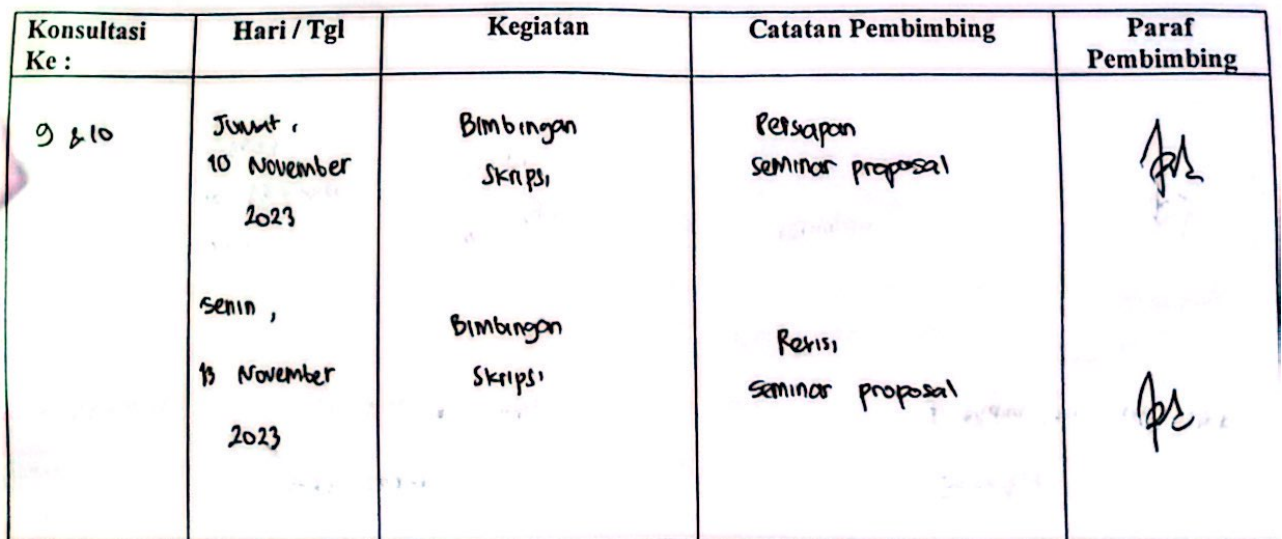 Konsultasi Ke :
Hari / Tgl
Kegiatan
Catatan Pembimbing
Paraf Pembimbing
9 & 10
Jumat,
10 November
2023
Bimbingan
Skripsi
Persiapan
seminar proposal
Senin,
13 November
2023
Bimbingan
Skripsi
Revisi
seminar proposal